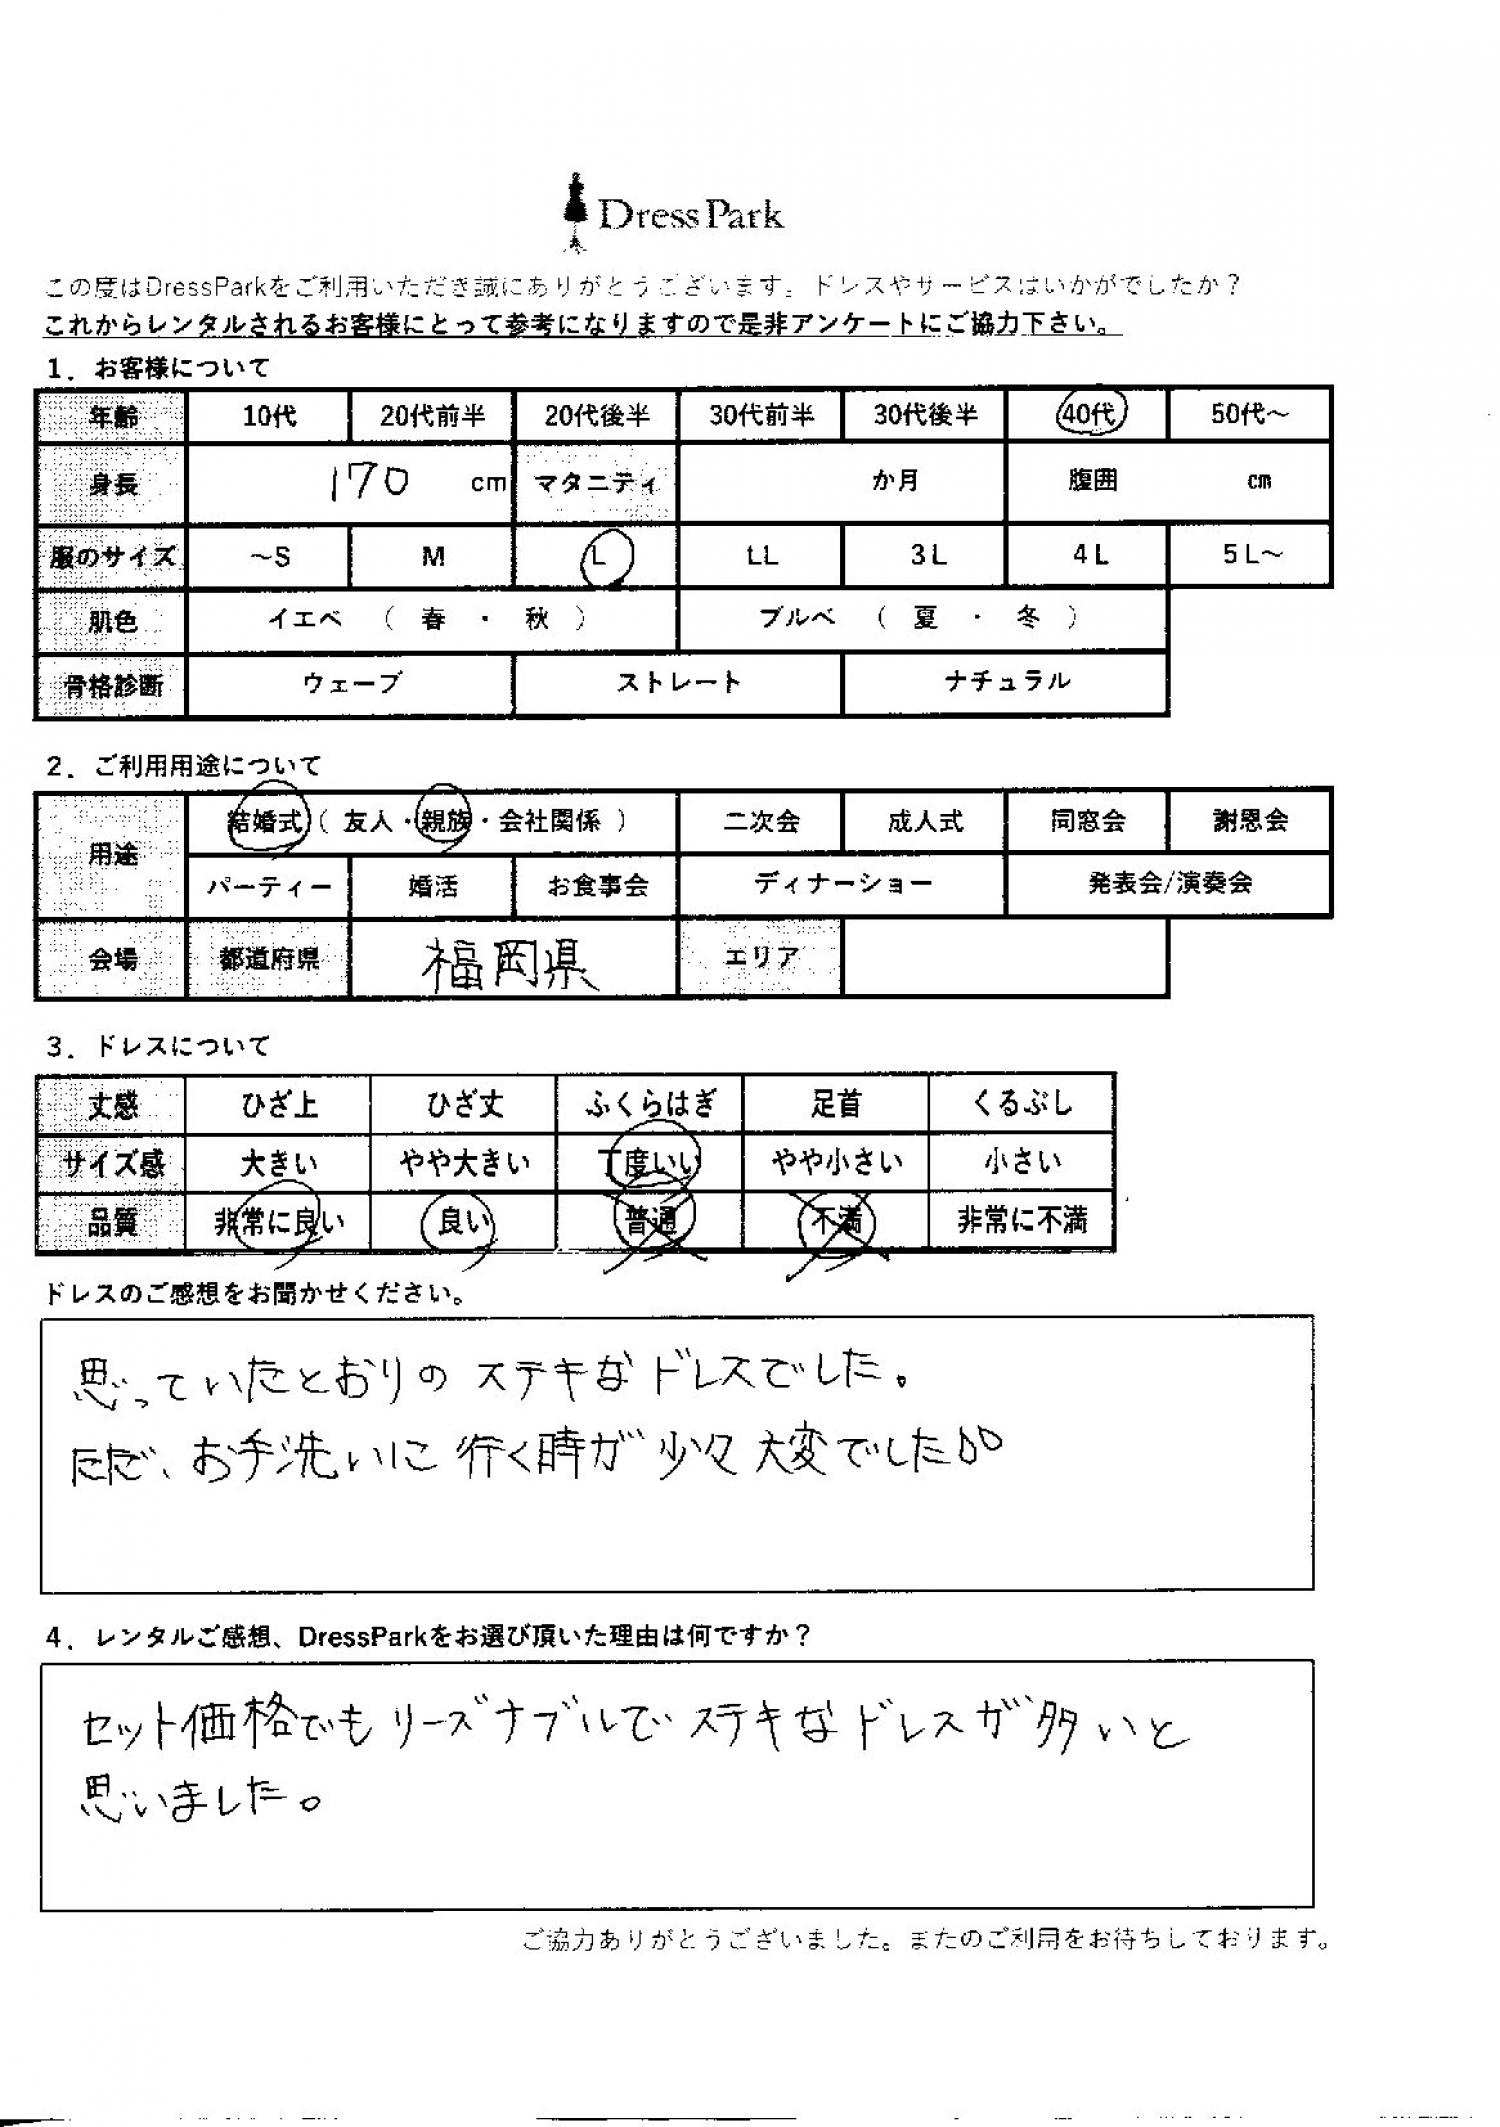 DressPark
この度はDressParkをご利用いただき誠にありがとうございます。ドレスやサービスはいかがでしたか？
これからレンタルされるお客様にとって参考になりますので是非アンケートにご協力下さい。
1．お客様について
年齢 10代 20代前半 20代後半 30代前半 30代後半 40代 50代～
身長 170 cm マタニティ か月 腹囲 cm
服のサイズ ～S M L LL 3L 4L 5L～
肌色 イエベ （ 春 ・ 秋 ） ブルベ （ 夏 ・ 冬 ）
骨格診断 ウェーブ ストレート ナチュラル
2．ご利用用途について
用途 結婚式（ 友人・親族・会社関係 ） 二次会 成人式 同窓会 謝恩会
パーティー 婚活 お食事会 ディナーショー 発表会/演奏会
会場 都道府県 福岡県 エリア
3．ドレスについて
丈感 ひざ上 ひざ丈 ふくらはぎ 足首 くるぶし
サイズ感 大きい やや大きい 丁度いい やや小さい 小さい
品質 非常に良い 良い 普通 不満 非常に不満
ドレスのご感想をお聞かせください。
思っていたとおりの ステキなドレスでした。
ただ、お手洗いに 行く時が 少々 大変でした
4．レンタルご感想、DressParkをお選び頂いた理由は何ですか？
セット価格でも リーズナブルで ステキな ドレスが多いと
思いました。
ご協力ありがとうございました。またのご利用をお待ちしております。